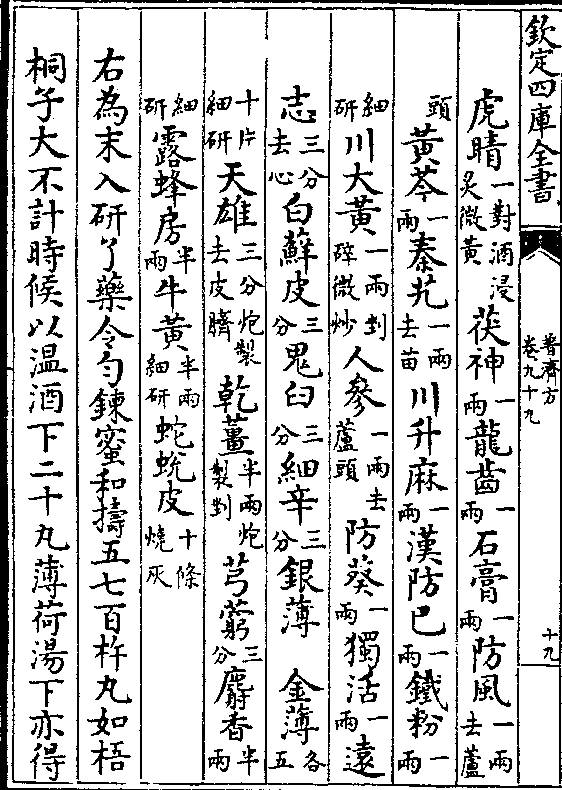 欽定四庫全書
普濟方
卷九十九
十九
虎睛一對酒浸炙微黃茯神一兩龍齒一兩石膏一兩防風一兩去蘆
頭黃芩一兩秦艽一兩去苗川升麻一兩漢防已一兩鐵粉一兩
細研川大黃一兩剉碎微炒人參一兩去蘆頭防葵一兩獨活一兩遠
志三分去心白蘚皮三分鬼臼三分細辛三分銀薄 金薄各五
十片細研天雄三分炮製去皮臍乾薑半兩炮製剉芎藭三分麝香半兩
細研露蜂房半兩牛黃半兩細研蛇蛻皮十條燒灰
右為末入研了藥令勻鍊蜜和擣五七百杵丸如梧
桐子大不計時候以温酒下二十丸薄荷湯下亦得